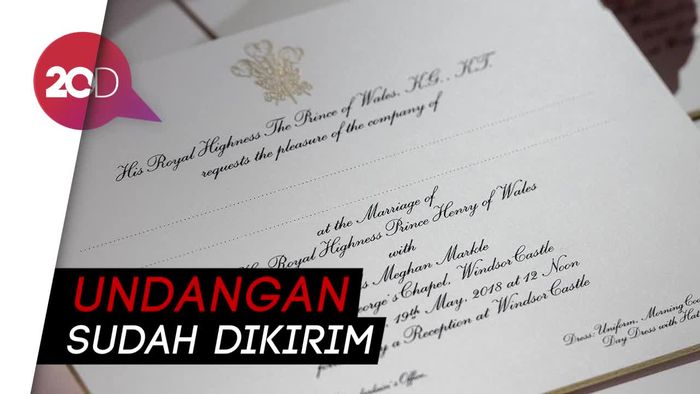 20D
His Royal Highness The Prince of Wales, K.G., K.T.
requests the pleasure of the company of
at the Marriage of
Royal Highness Prince Henry of Wales
with
Meghan Markle
Chapel, Windsor Castle
19th May, 2018 at 12 Noon
by a Reception at Windsor Castle
Dress: Uniform, Morning
Day Dress with
Office.
UNDANGAN
SUDAH DIKIRIM